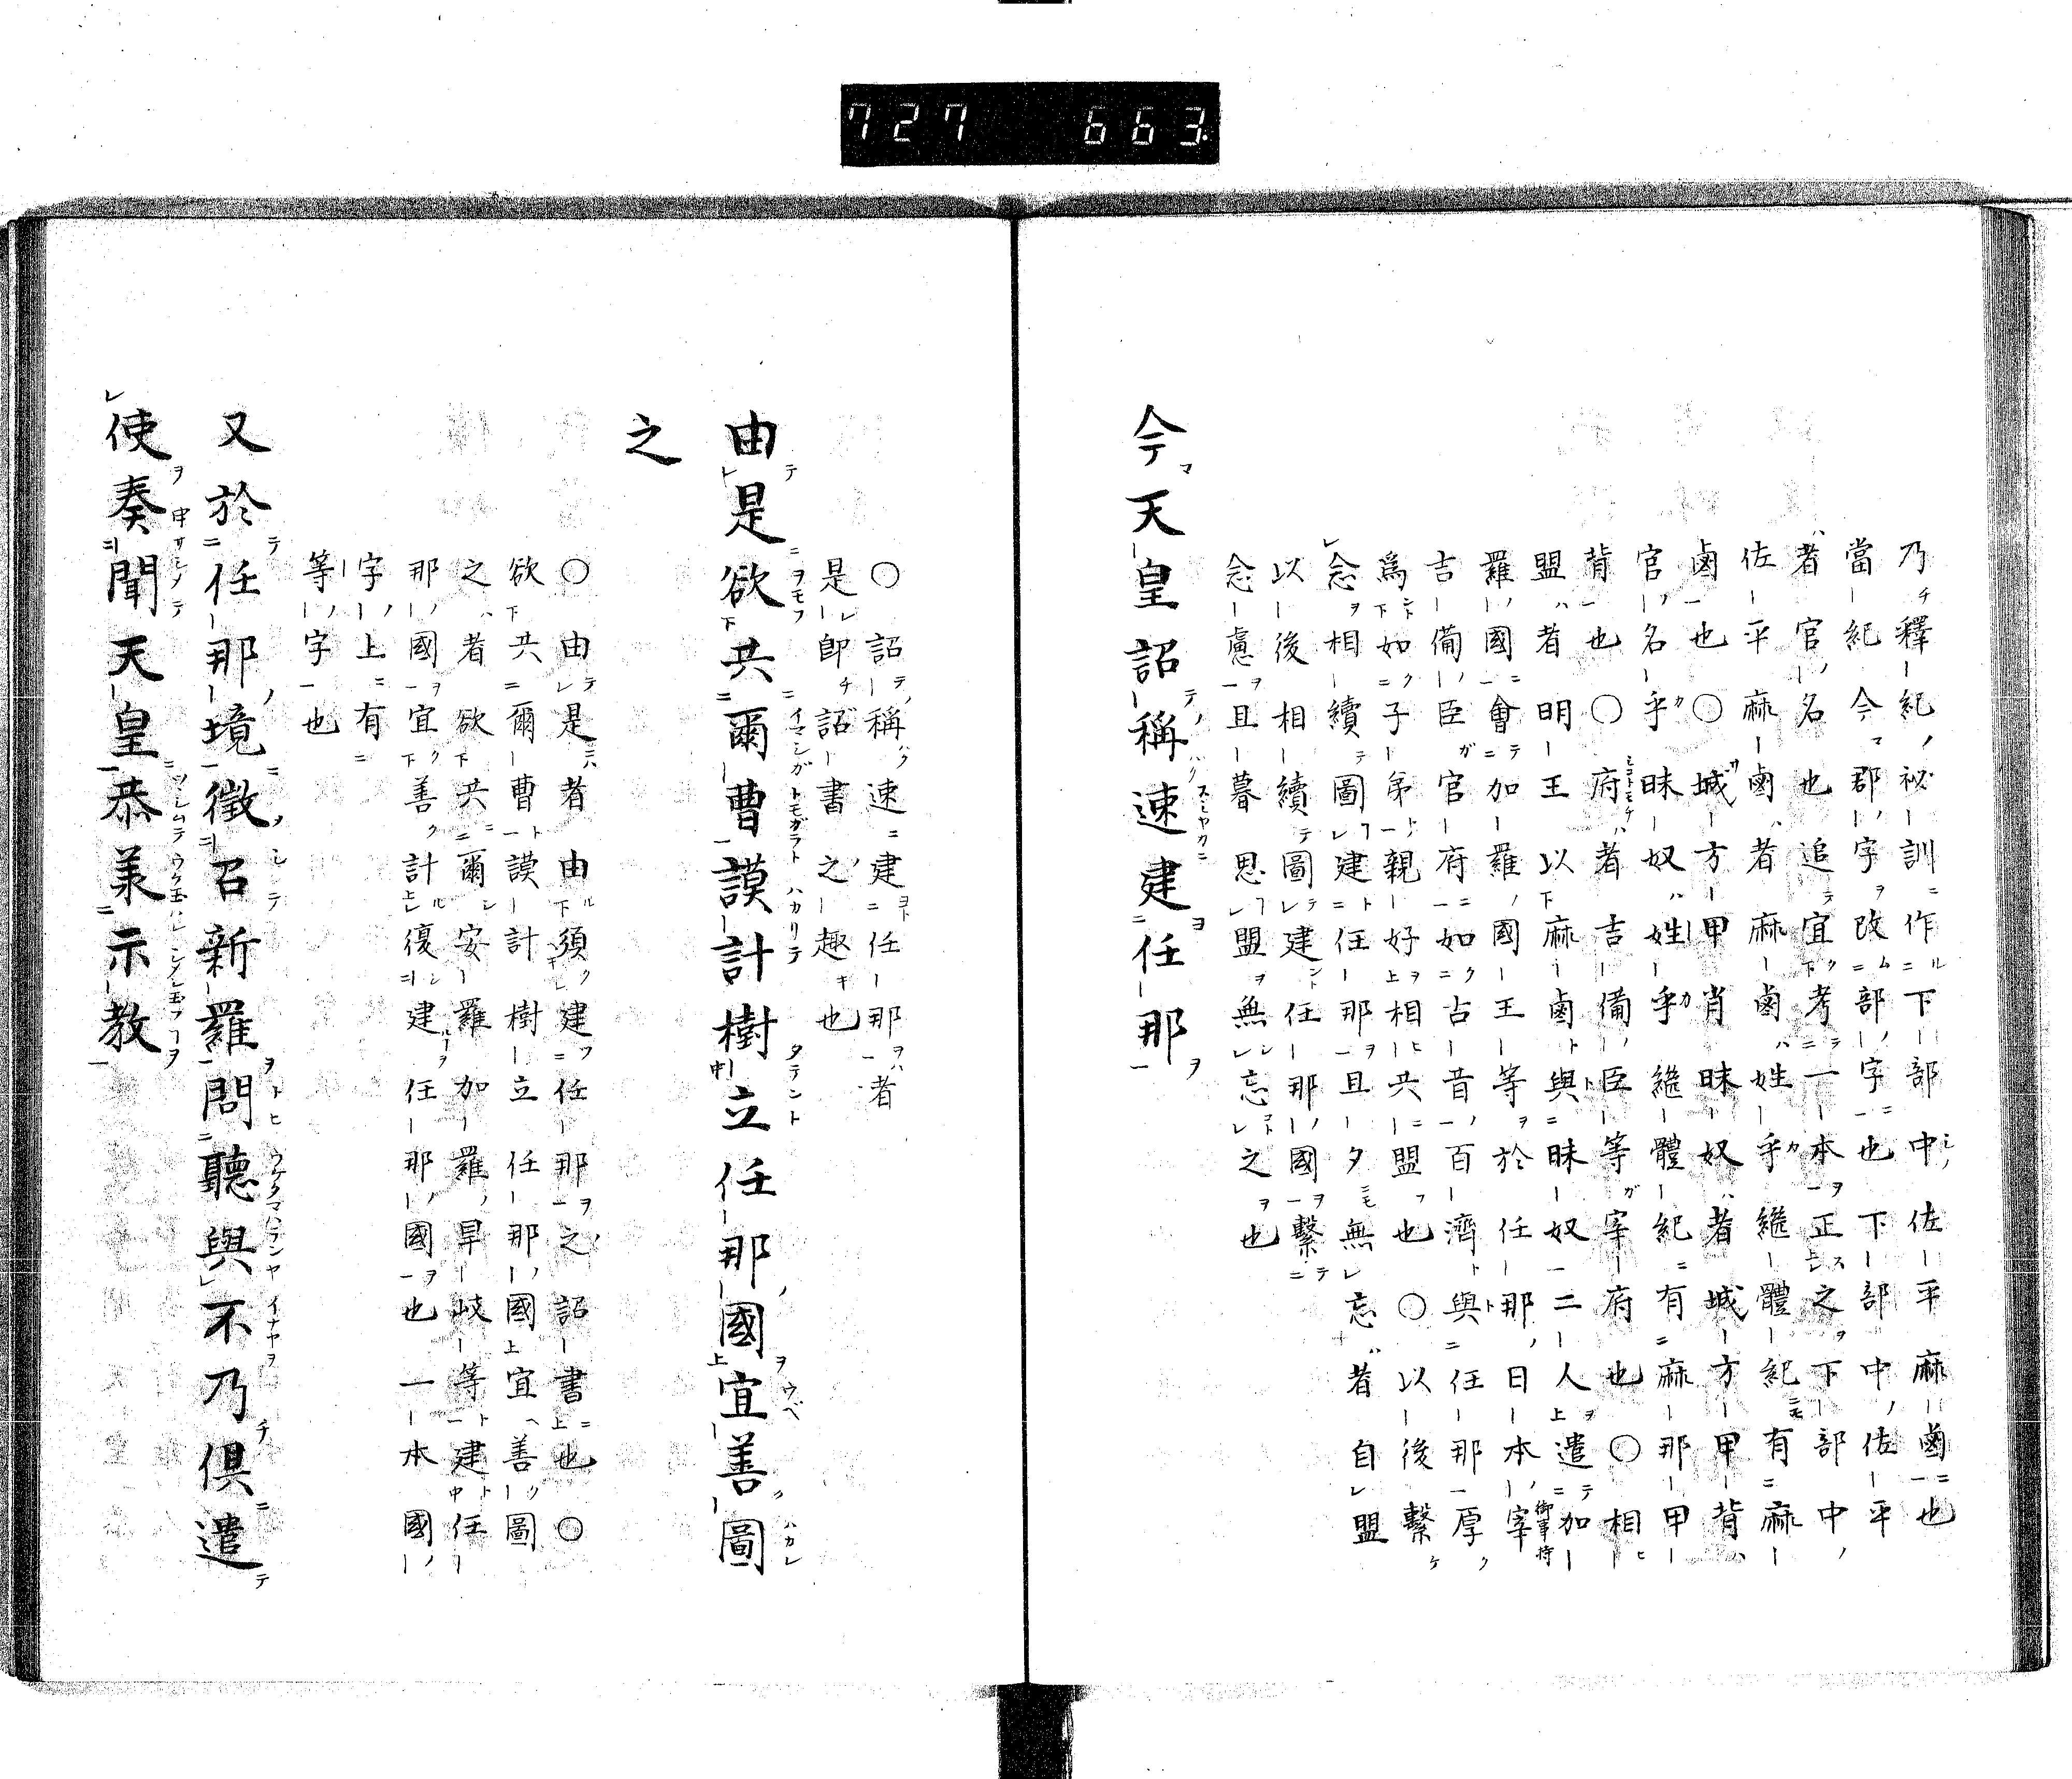 727 663
乃釋紀祕訓作下部中佐平麻鹵也
當紀今郡字改部字也下部中佐平
者官名也追宜考一本正之下部中
佐平麻鹵者麻鹵姓乎繼體紀有麻
鹵也〇城方甲肖昧奴者城方甲背
官名乎昧奴姓乎繼體紀有麻那甲
背也〇府者吉備臣等宰府也〇相
盟者明王以麻鹵與昧奴二人遣加
羅國會加羅國王等於任那日本宰
吉備臣官府如古昔百濟與任那厚
爲如子弟親好相共盟也〇以後繫
念相續圖建任那且夕無忘者自盟
以後相續圖建任那國繫
念慮且暮思盟無忘之也
今天皇詔稱速建任那
〇詔稱速建任那者
是卽詔書之趣也
由是欲共爾曹謨計樹立任那國宜善圖
之
〇由是者由須建任那之詔書也〇
欲共爾曹謨計樹立任那國宜善圖
之者欲共爾安羅加羅旱岐等建任
那國宜善計復建任那國也一本國
字上有
等字也
又於任那境徵召新羅問聽與不乃俱遣
使奏聞天皇恭羕示教